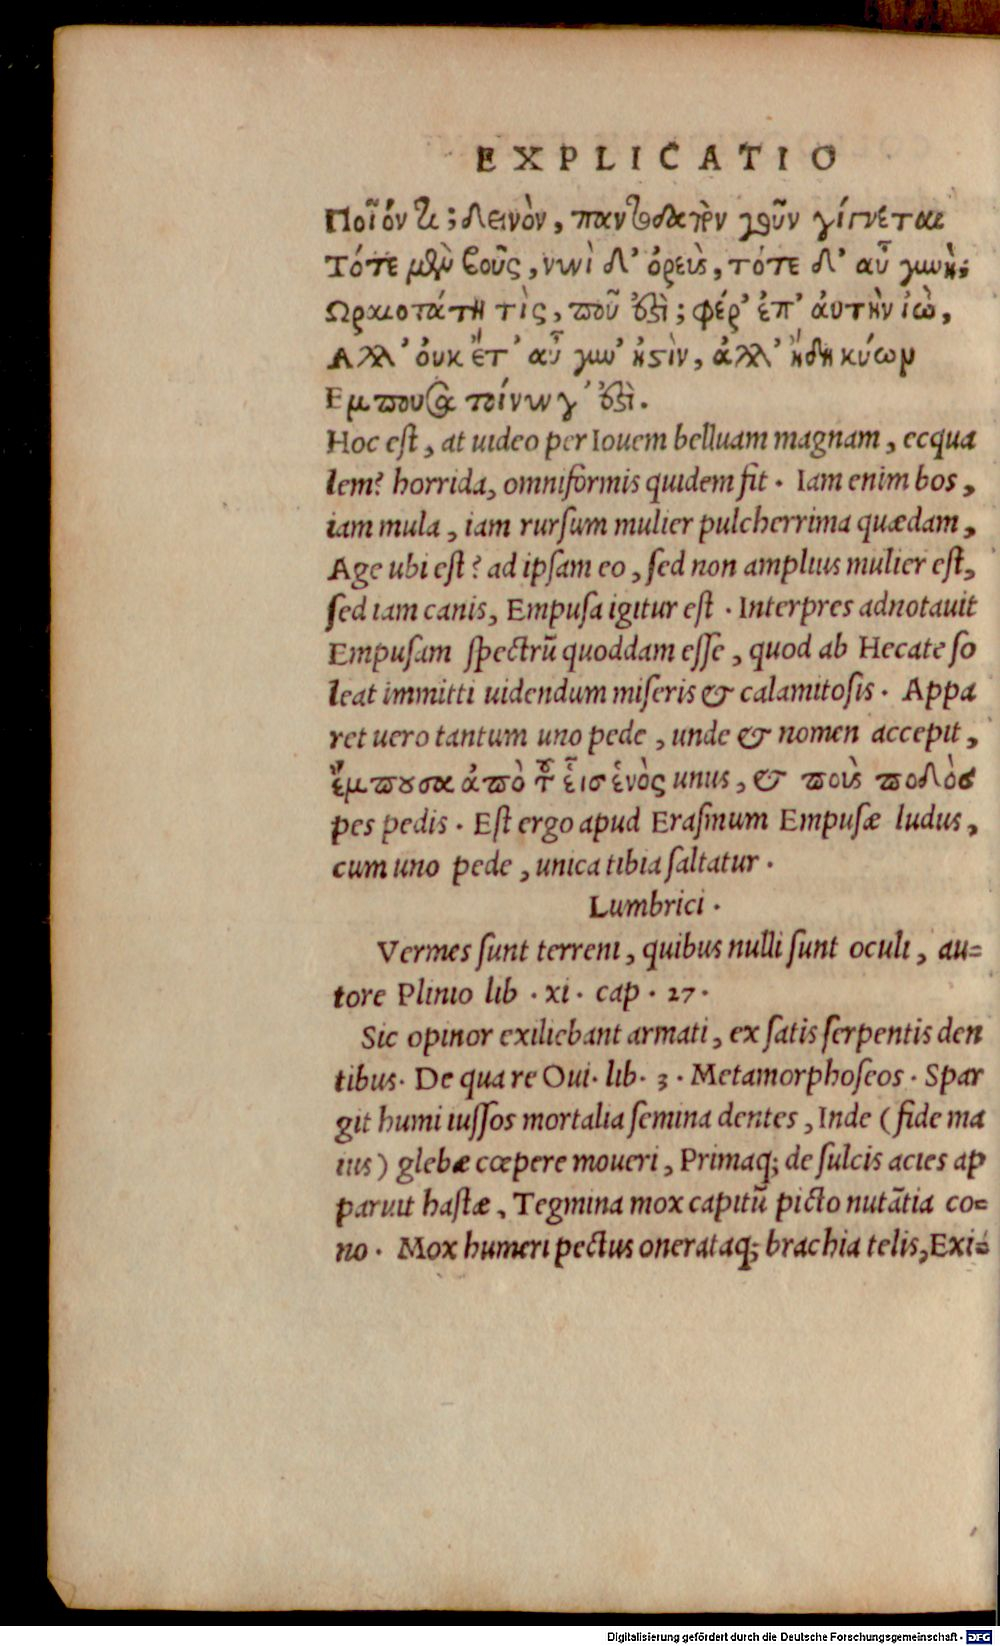 EXPLICATIO
Ποῖόν τι; δεινὸν, παντοδαπὸν γοῦν γίγνεται
Τότε μὲν βοῦς, νυνὶ δ' ὀρεὺς, τότε δ' αὖ γυνὴ
Ωραιοτάτη τὶς, ποῦ ὅστι; φέρ' ἐπ' ἀυτὴν ἰὼ,
Αλλ' ὀυκ ἔτ' αὖ γυν' ἠστὶν, ἀλλ' ἤδη κύων
Εμπουσα τοίνυν γ' ὅστὶ.
Hoc eſt, at uideo per Iouem belluam magnam, ecqua
lem? horrida, omniformis quidem fit. Iam enim bos,
iam mula, iam rurſum mulier pulcherrima quædam,
Age ubi eſt? ad ipſam eo, ſed non amplius mulier eſt,
ſed iam canis, Empuſa igitur eſt. Interpres adnotauit
Empuſam ſpectrũ quoddam eſſe, quod ab Hecate ſo
leat immitti uidendum miſeris & calamitoſis. Appa
ret uero tantum uno pede, unde & nomen accepit,
ἔμπουσα ἀπὸ τοῦ εἷς ἑνὸς unus, & ποὺς ποδὸς
pes pedis. Eſt ergo apud Eraſmum Empuſæ ludus,
cum uno pede, unica tibia ſaltatur.
Lumbrici.
Vermes ſunt terreni, quibus nulli ſunt oculi, au=
tore Plinio lib. xi. cap. 27.
Sic opinor exiliebant armati, ex ſatis ſerpentis den
tibus. De qua re Oui. lib. 3. Metamorphoſeos. Spar
git humi iuſſos mortalia ſemina dentes, Inde (fide ma
ius) glebæ cœpere moueri, Primaq; de ſulcis acies ap
paruit haſtæ, Tegmina mox capitũ picto nutãtia co=
no. Mox humeri pectus onerataq; brachia telis, Exi=
Digitalisierung gefördert durch die Deutsche Forschungsgemeinschaft - DFG